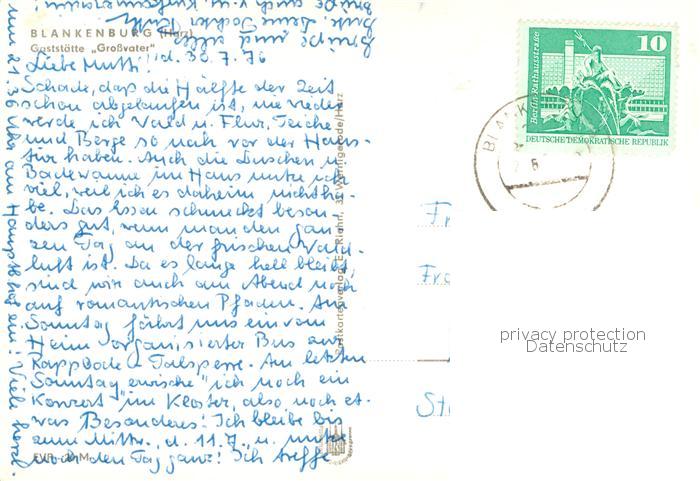 BLANKENBURG (Harz)
Gaststätte „Großvater"
Liebe Mutti! d. 30.7.76
Schade, daß die Hälfte der Zeit
schon abgelaufen ist, nie wieder
werde ich Wald u. Flur, Teiche
und Berge so nah vor der Haus-
tür haben. Auch die Duschen u.
Badewanne im Haus nutze ich
viel, weil ich es daheim nicht ha-
be. Das Essen schmeckt beson-
ders gut, wenn man den gan-
zen Tag an der frischen Wald-
luft ist. Da es lange hell bleibt,
sind wir auch am Abend noch
auf romantischen Pfaden. Am
Sonntag fährt uns ein vom
Heim organisierter Bus zur
Rappbode-Talsperre. Am letzten
Sonntag „erwische" ich noch ein
Konzert im Kloster, also noch et-
was Besonderes! Ich bleibe bis
zum Mittw., d. 11.7., u.
den Tag ganz! Ich treffe
um 21.36 Uhr am Hauptbhf ein! Viele herzl.
Grüße und alles
Gute, Deine Tochter Ruth
EVP M
Postkartenverlag E. Riehn, 37 Wernigerode/Harz
Berlin, Rathausstraße
10
DEUTSCHE DEMOKRATISCHE REPUBLIK
BLANK
Fr
Fra
St
privacy protection
Datenschutz